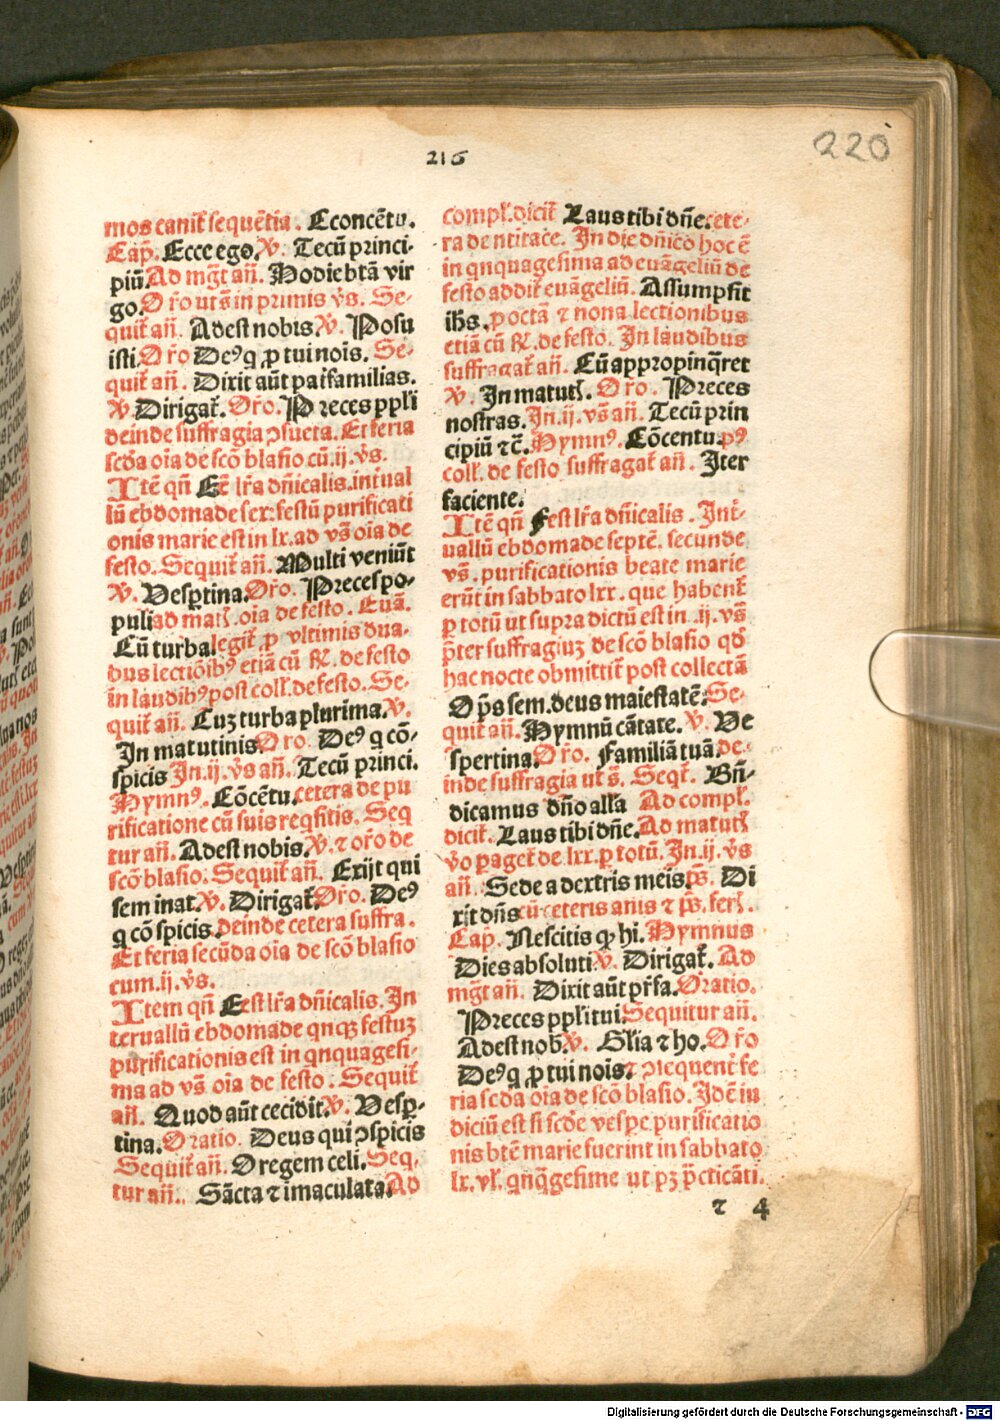 216
220
mos canit̄ sequētia. Cconcētu.
Cap̄. Ecce ego. ꝟ. Tecū princi-
piū. Ad mgt̄ añ. Hodie btā vir
go. Or̄o ut s̄ in primis v̄s. Se-
quit̄ añ. Adest nobis. ꝟ. Posu
isti. Or̄o Deꝰ q̄ ꝓ tui nois̄. Se-
quit̄ añ. Dixit aūt pat̄familias.
ꝟ. Dirigat̄. Or̄o. Preces ppl̄i
deinde suffragia ↄsueta. Et feria
scd̄a oīa de scō blasio cū .ij. v̄s.
Itē qñ E ē lr̄a dn̄icalis. int̄ual
lū ebdomade sex: festū purificati
onis marie est in lx. ad vs̄ oīa de
festo. Sequit̄ añ. Multi veniūt
ꝟ. Vesꝑtina. Or̄o. Preces po-
puli ad mat̄. oīa de festo. Euā.
Cū turba legit̄ ꝓ vltimis dua-
bus lectiōibꝰ etiā cū ℟. de festo
in laudibꝰ post coll̄. de festo. Se-
quit̄ añ. Cuz turba plurima. ꝟ.
In matutinis. Oro. Deꝰ q̄ cō-
spicis In .ij. v̄s añ. Tecū princi.
Hymnꝰ. Cōcētu. cetera de pu
rificatione cū suis reqs̄itis. Seq
tur añ. Adest nobis. ꝟ. ⁊ or̄o de
scō blasio. Sequit̄ añ. Exijt qui
seminat. ꝟ. Dirigat̄. Or̄o. Deꝰ
q̄ cōspicis. deinde cetera suffra.
Et feria secūda oīa de scō blasio
cum .ij. v̄s.
Item qñ E est lr̄a dn̄icalis. In
teruallū ebdomade qnqꝫ festuz
purificationis est in qn̄quagesi-
ma ad vs̄ oīa de festo. Sequit̄
añ. Quod aūt cecidit. ꝟ. Vesꝑ-
tina. Oratio. Deus qui ↄspicis
Sequit̄ añ. O regem celi. Seq.
tur añ. Sācta ⁊ imaculata. Ad
compl̄. dicit̄ Laus tibi dn̄e. cete-
ra de ntitate. In die dn̄ico hoc ē
in qnquagesima ad euāgeliū de
festo addit̄ euāgeliū. Assumpsit
ih̄s. ꝓ octa ⁊ nona lectionibus
etiā cū ℟. de festo. In laudibus
suffragat̄ añ. Cū appropinq̄ret
ꝟ. In matut̄. Or̄o. Preces
nostras. In .ij. vs̄ añ. Tecū prin
cipiū ⁊c̄. Hymnꝰ. Cōcentu. pꝰ
coll̄. de festo suffragat̄ añ. Iter
faciente.
Itē qñ F est lr̄a dn̄icalis. Int̄-
uallū ebdomade septē. secunde
vs̄. purificationis beate marie
erūt in sabbato lxx. que habent̄
ꝑ totū ut supra dictū est in .ij. vs̄
p̄ter suffragiuz de scō blasio qd̄
hac nocte obmittit̄ post collectā
Op̄s sem. deus maiestatē. Se-
quit̄ añ. Hymnū cātate. ꝟ. Ve
spertina. Or̄o. Familiā tuā de-
inde suffragia ut s̄. Seqt̄. Bn̄-
dicamus dn̄o all̄a Ad compl̄.
dicit̄. Laus tibi dn̄e. Ad matut̄
v̄o paget̄ de lxx. ꝑ totū. In .ij. v̄s
añ. Sede a dextris meis. p̄s. Di
xit dn̄s cū ceteris anis ⁊ p̄s. fer̄.
Cap̄. Nescitis q̄ hi. Hymnus
Dies absoluti. ꝟ. Dirigat̄. Ad
mgt̄ añ. Dixit aūt pr̄fa. Oratio.
Preces ppl̄i tui. Sequitur añ.
Adest nob̄. ꝟ. Gl̄ia ⁊ ho. Or̄o
Deꝰ q̄ ꝓ tui nois̄. ⁊ sequent̄ fe
ria scd̄a oīa de scō blasio. Idē iu
diciū est si scd̄e vesꝑe purificatio
nis btē marie fuerint in sabbato
lx. vl̄. qn̄q̄gesime ut pꝫ p̄cticāti.
⁊ 4
Digitalisierung gefördert durch die Deutsche Forschungsgemeinschaft - DFG